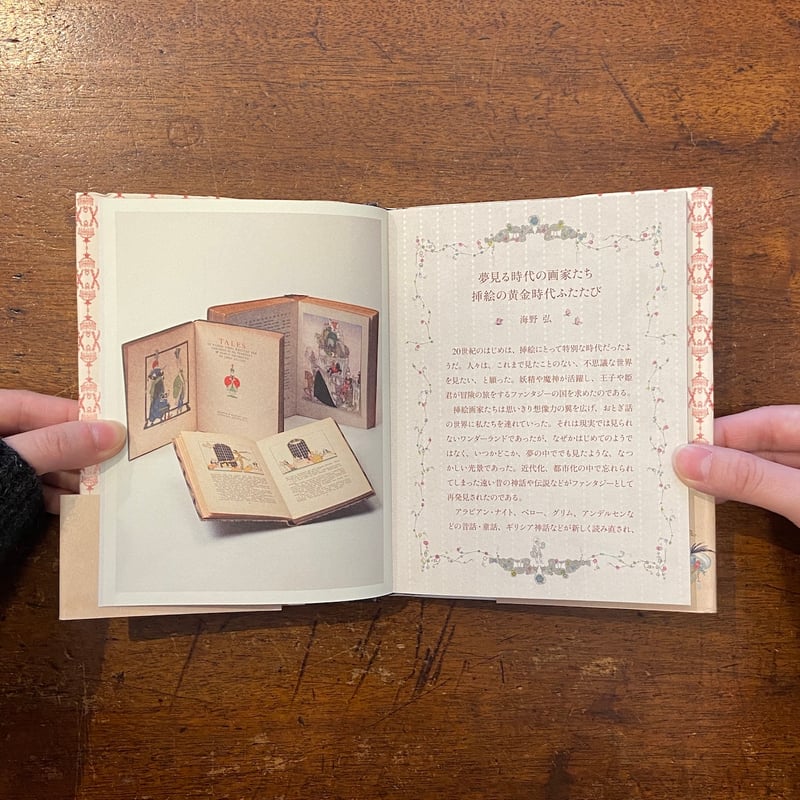 TALES
夢見る時代の画家たち
挿絵の黄金時代ふたたび
海野 弘
20世紀のはじめは、挿絵にとって特別な時代だったよ
うだ。人々は、これまで見たことのない、不思議な世界
を見たい、と願った。妖精や魔神が活躍し、王子や姫
君が冒険の旅をするファンタジーの国を求めたのである。
挿絵画家たちは思いきり想像力の翼を広げ、おとぎ話
の世界に私たちを連れていった。それは現実では見られ
ないワンダーランドであったが、なぜかはじめてのようで
はなく、いつかどこか、夢の中ででも見たような、なつ
かしい光景であった。近代化、都市化の中で忘れられ
てしまった遠い昔の神話や伝説などがファンタジーとして
再発見されたのである。
アラビアン・ナイト、ペロー、グリム、アンデルセンな
どの昔話・童話、ギリシア神話などが新しく読み直され、